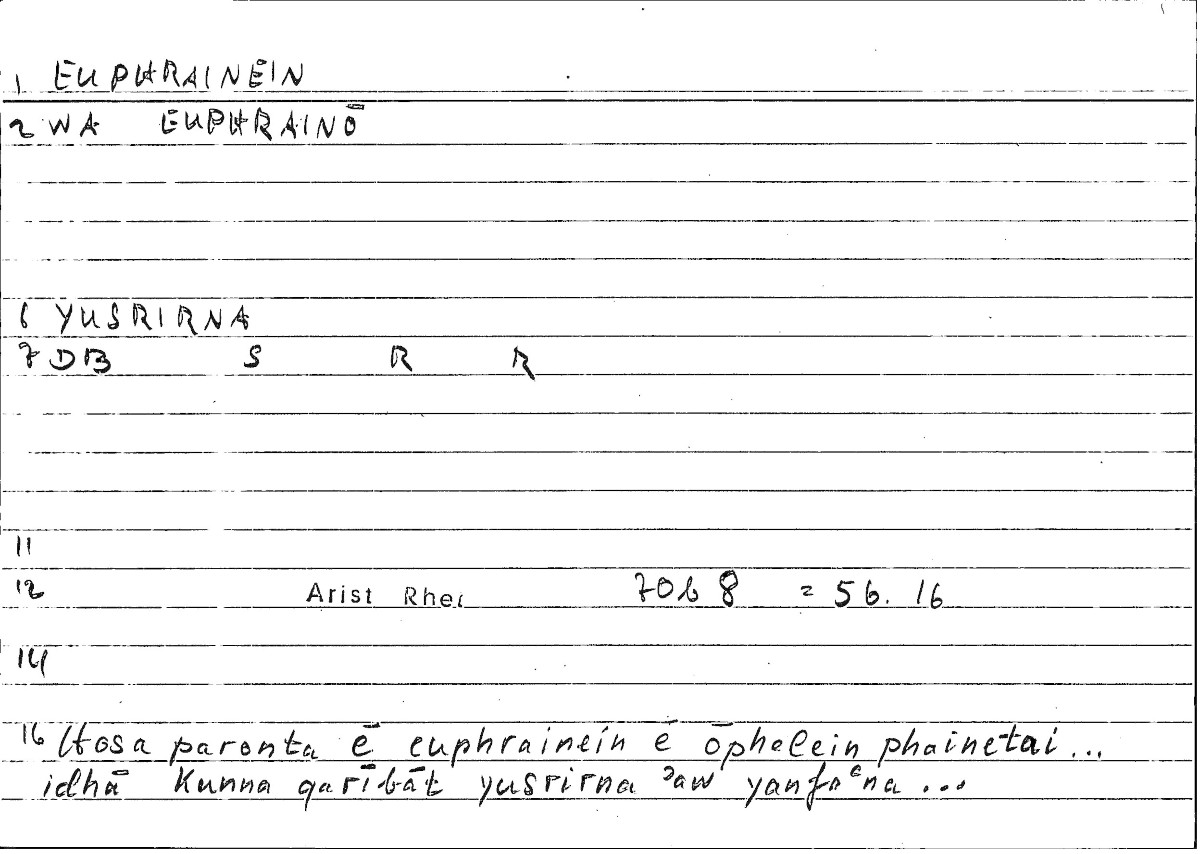 1 EUPHRAINEIN
2 WA EUPHRAINŌ
6 YUSRIRNA
7 DB S R R
11
12 Arist Rhet 70b 8 = 56. 16
14
16 Hosa paronta ē euphrainein ē ōphelein phainetai...
idhā kunna qarībāt yusrirna ʾaw yanfaʿna ...